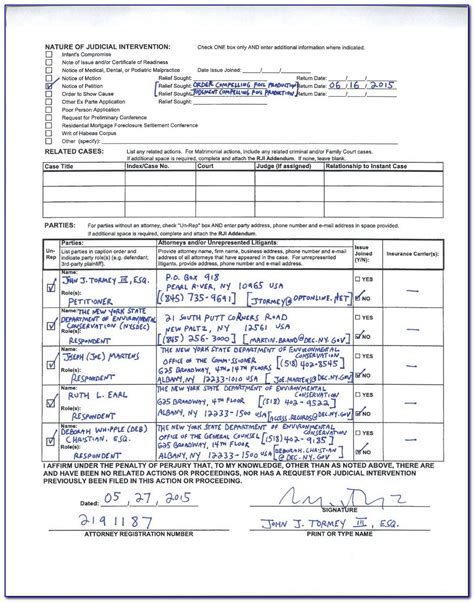 NATURE OF JUDICIAL INTERVENTION: Check ONE box only AND enter additional information where indicated.
Infant's Compromise
Note of Issue and/or Certificate of Readiness
Notice of Medical, Dental, or Podiatric Malpractice Date Issue Joined:
Notice of Motion Relief Sought: ORDER COMPELLING FOIL PRODUCTION Return Date:
Notice of Petition Relief Sought: JUDGMENT COMPELLING FOIL PRODUCTION Return Date: 06/16/2015
Order to Show Cause Relief Sought: Return Date:
Other Ex Parte Application Relief Sought:
Poor Person Application
Request for Preliminary Conference
Residential Mortgage Foreclosure Settlement Conference
Writ of Habeas Corpus
Other (specify):
RELATED CASES: List any related actions. For Matrimonial actions, include any related criminal and/or Family Court cases.
If additional space is required, complete and attach the RJI Addendum. If none, leave blank.
Case Title Index/Case No. Court Judge (if assigned) Relationship to Instant Case
PARTIES: For parties without an attorney, check "Un-Rep" box AND enter party address, phone number and e-mail address in space provided.
If additional space is required, complete and attach the RJI Addendum.
Un-Rep
Parties:
List parties in caption order and indicate party role(s) (e.g. defendant; 3rd-party plaintiff).
Attorneys and/or Unrepresented Litigants:
Provide attorney name, firm name, business address, phone number and e-mail address of all attorneys that have appeared in the case. For unrepresented litigants, provide address, phone number and e-mail address.
Issue Joined (Y/N):
Insurance Carrier(s):
Name: JOHN J. TORMEY III, ESQ.
Role(s): PETITIONER
P.O. BOX 918
PEARL RIVER, NY 10965 USA
(845) 735-9691 JTORMEY@OPTONLINE.NET
YES
NO
Name: THE NEW YORK STATE DEPARTMENT OF ENVIRONMENTAL CONSERVATION (NYSDEC)
Role(s): RESPONDENT
21 SOUTH PUTT CORNERS ROAD
NEW PALTZ, NY 12561 USA
(845) 256-3000 MARTIN.BRAND@DEC.NY.GOV
YES
NO
Name: JOSEPH (JOE) MARTENS
Role(s): RESPONDENT
THE NEW YORK STATE DEPARTMENT OF ENVIRONMENTAL CONSERVATION
OFFICE OF THE COMMISSIONER (518) 402-8545
625 BROADWAY, 4TH + 14TH FLOORS
ALBANY, NY 12233-1010 USA JOE.MARTENS@DEC.NY.GOV
YES
NO
Name: RUTH L. EARL
Role(s): RESPONDENT
THE NEW YORK STATE DEPARTMENT OF ENVIRONMENTAL CONSERVATION
625 BROADWAY, 4TH FLOOR (518) 402-9522
ALBANY, NY 12233-1500 USA ACCESS.RECORDS@DEC.NY.GOV
YES
NO
Name: DEBORAH WHIPPLE (DEB) CHRISTIAN, ESQ.
Role(s): RESPONDENT
THE NEW YORK STATE DEPARTMENT OF ENVIRONMENTAL CONSERVATION
OFFICE OF THE GENERAL COUNSEL (518) 402-9185
625 BROADWAY, 14TH FLOOR
ALBANY, NY 12233-1500 USA DEBORAH.CHRISTIAN@DEC.NY.GOV
YES
NO
I AFFIRM UNDER THE PENALTY OF PERJURY THAT, TO MY KNOWLEDGE, OTHER THAN AS NOTED ABOVE, THERE ARE
AND HAVE BEEN NO RELATED ACTIONS OR PROCEEDINGS, NOR HAS A REQUEST FOR JUDICIAL INTERVENTION
PREVIOUSLY BEEN FILED IN THIS ACTION OR PROCEEDING.
Dated: 05/27/2015
SIGNATURE
2191187
ATTORNEY REGISTRATION NUMBER
JOHN J. TORMEY III, ESQ.
PRINT OR TYPE NAME